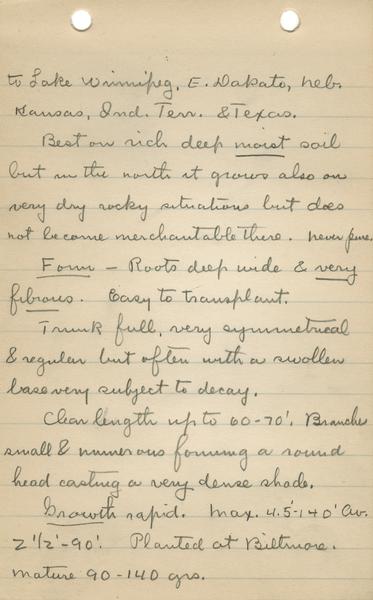 to Lake Winnipeg, E. Dakato, Neb.
Kansas, Ind. Terr. & Texas.
Best on rich deep moist soil
but in the north it grows also on
very dry rocky situations but does
not become merchantable there. never pure.
Form - Roots deep wide & very
fibrous. Easy to transplant.
Trunk full, very symmetrical
& regular but often with a swollen
base very subject to decay.
Clear length up to 60-70'. Branches
small & numerous forming a round
head casting a very dense shade.
Growth rapid. Max. 4.5'-140' Av.
2 1/2'-90'. Planted at Biltmore.
Mature 90-140 yrs.